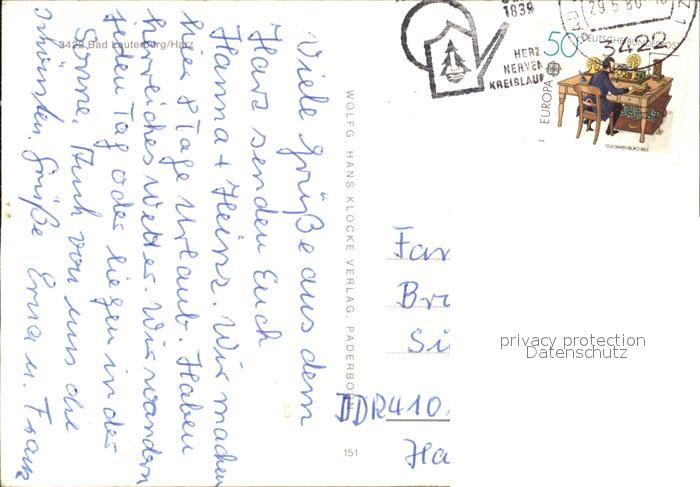 3422 Bad Lauterberg/Harz
Viele Grüße aus dem
Harz senden Euch
Hanna + Heinz. Wir machen
hier 8 Tage Urlaub. Haben
herrliches Wetter. Wir wandern
jeden Tag oder liegen in der
Sonne. Auch von uns die
schönsten Grüße Erna u. Franz
WOLFG. HANS KLOCKE VERLAG, PADERBORN
151
1839
HERZ
NERVEN
KREISLAUF
29.5.80
3422
50
DEUTSCHE BUNDESPOST
EUROPA
Fam
Br
Si
DDR 410
Ha
privacy protection
Datenschutz